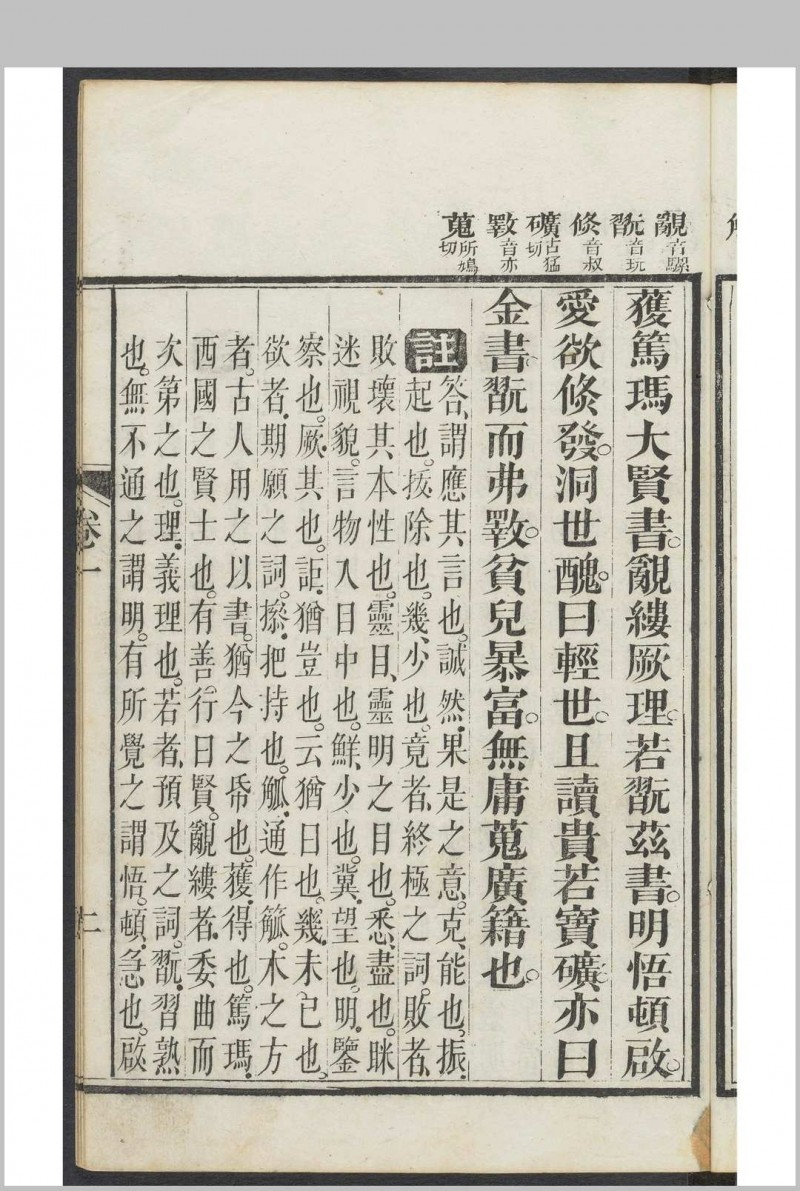 覶音騾
翫音玩
倏音叔
礦古猛切
斁音亦
蒐所鳩切
獲篤瑪大賢書。覶縷厥理。若翫茲書。明悟頓啟。
愛欲倏發。洞世醜。曰輕世。且讀貴若寶礦。亦曰
金書。翫而弗斁。貧兒暴富。無庸蒐廣籍也。
註答、謂應其言也。誠然、果是之意。克、能也。振、
起也。拔、除也。幾、少也。竟者、終極之詞。敗者、
敗壞其本性也。靈目、靈明之目也。悉、盡也。眯、
迷視貌。言物入目中也。鮮、少也。冀、望也。明、鑒
察也。厥、其也。詎、猶豈也。云、猶曰也。幾、未已也。
欲者、期願之詞。撡、把持也。觚、通作觚。木之方
者。古人用之以書。猶今之帋也。獲、得也。篤瑪、
西國之賢士也。有善行曰賢。覶縷者、委曲而
次第之也。理、義理也。若者、預及之詞。翫、習熟
也。無不通之謂明。有所覺之謂悟。頓、急也。啟
卷一
二